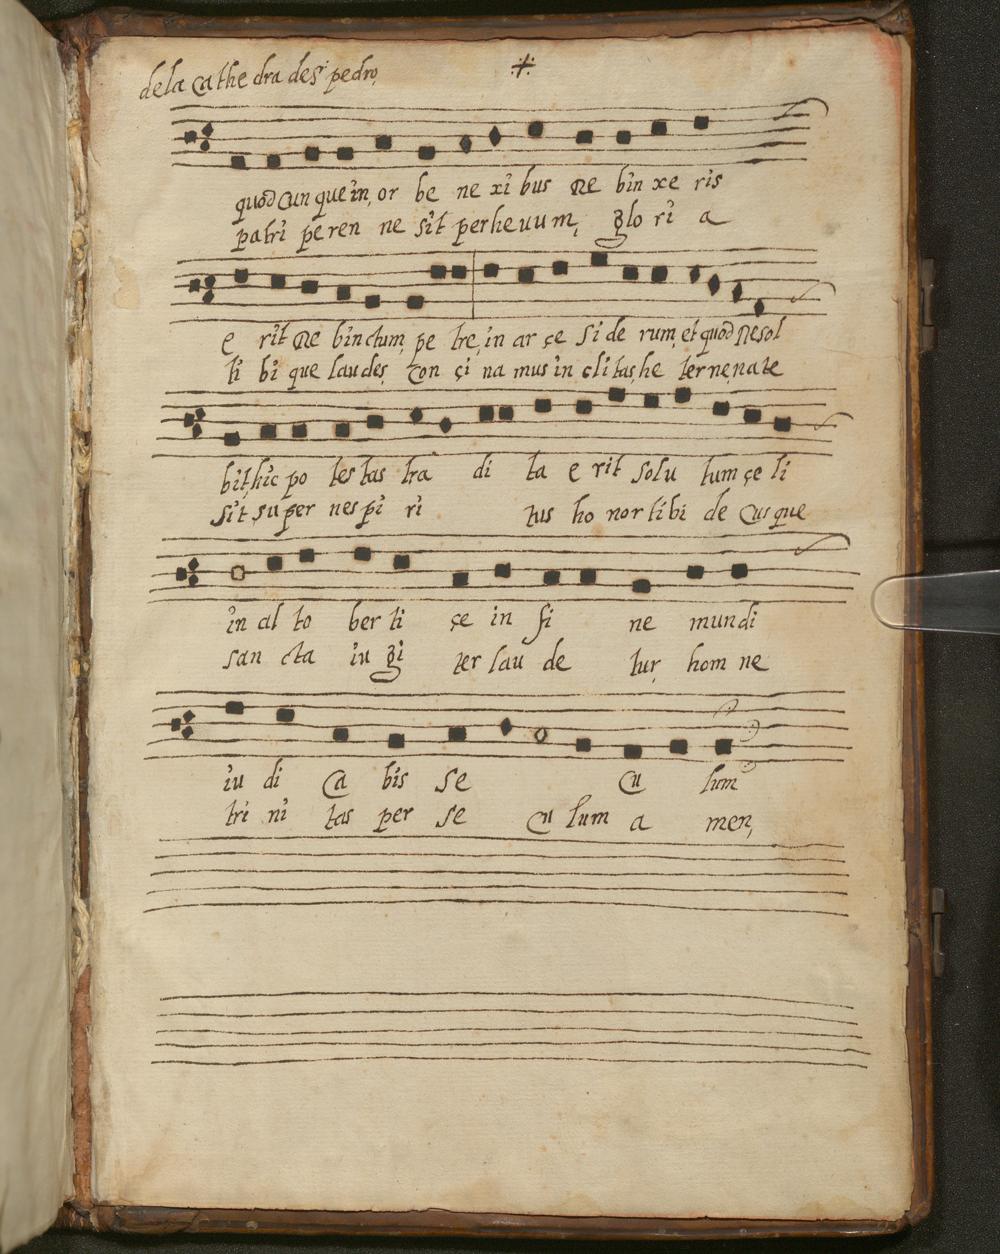 dela Cathe dra des.r pedro,
quod Cun que in, or be ne xi bus Re bin xe ris
patri peren ne sit perhevum, glo ri a
e rit Re binctum, pe tre, in ar çe si de rum, et quod Resol
ti bi que laudes, Con çi na mus in clitas, he terne, nate
bit, hic po tes tas tra di ta e rit solu tum çe li
sit super nes pi ri tus ho nor tibi de Cus que
in al to ber ti çe in fi ne mundi
san cta iu gi ter lau de tur, hom ne
iu di Ca bis se Cu lum
tri ni tas per se Cu lum a men,